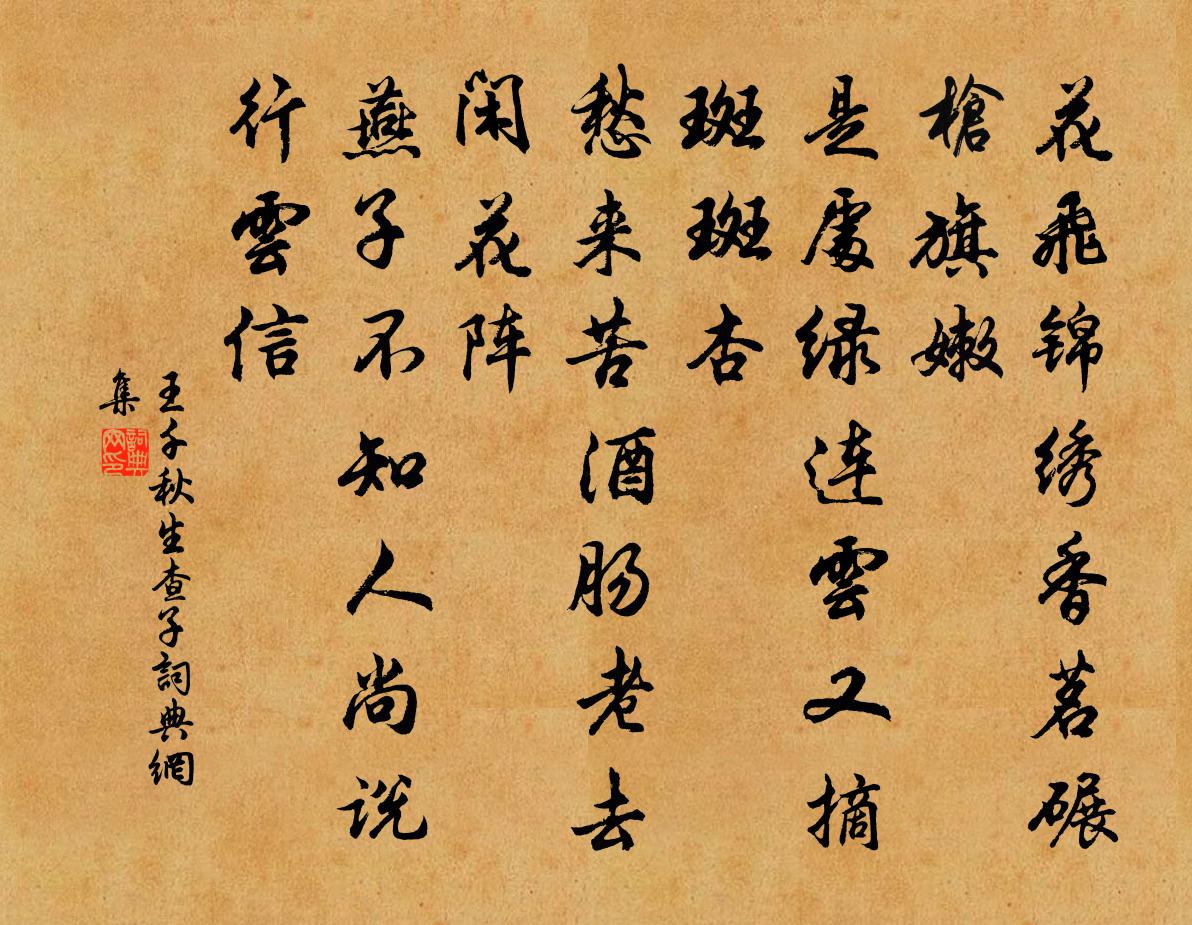 花飛锦绣香茗碾
槍旗嫩
是處绿连雲又摘
斑斑杏
愁来苦酒肠老去
闲花阵
燕子不知人尚说
行雲信
王千秋生查子詞典網
集
詞典网印